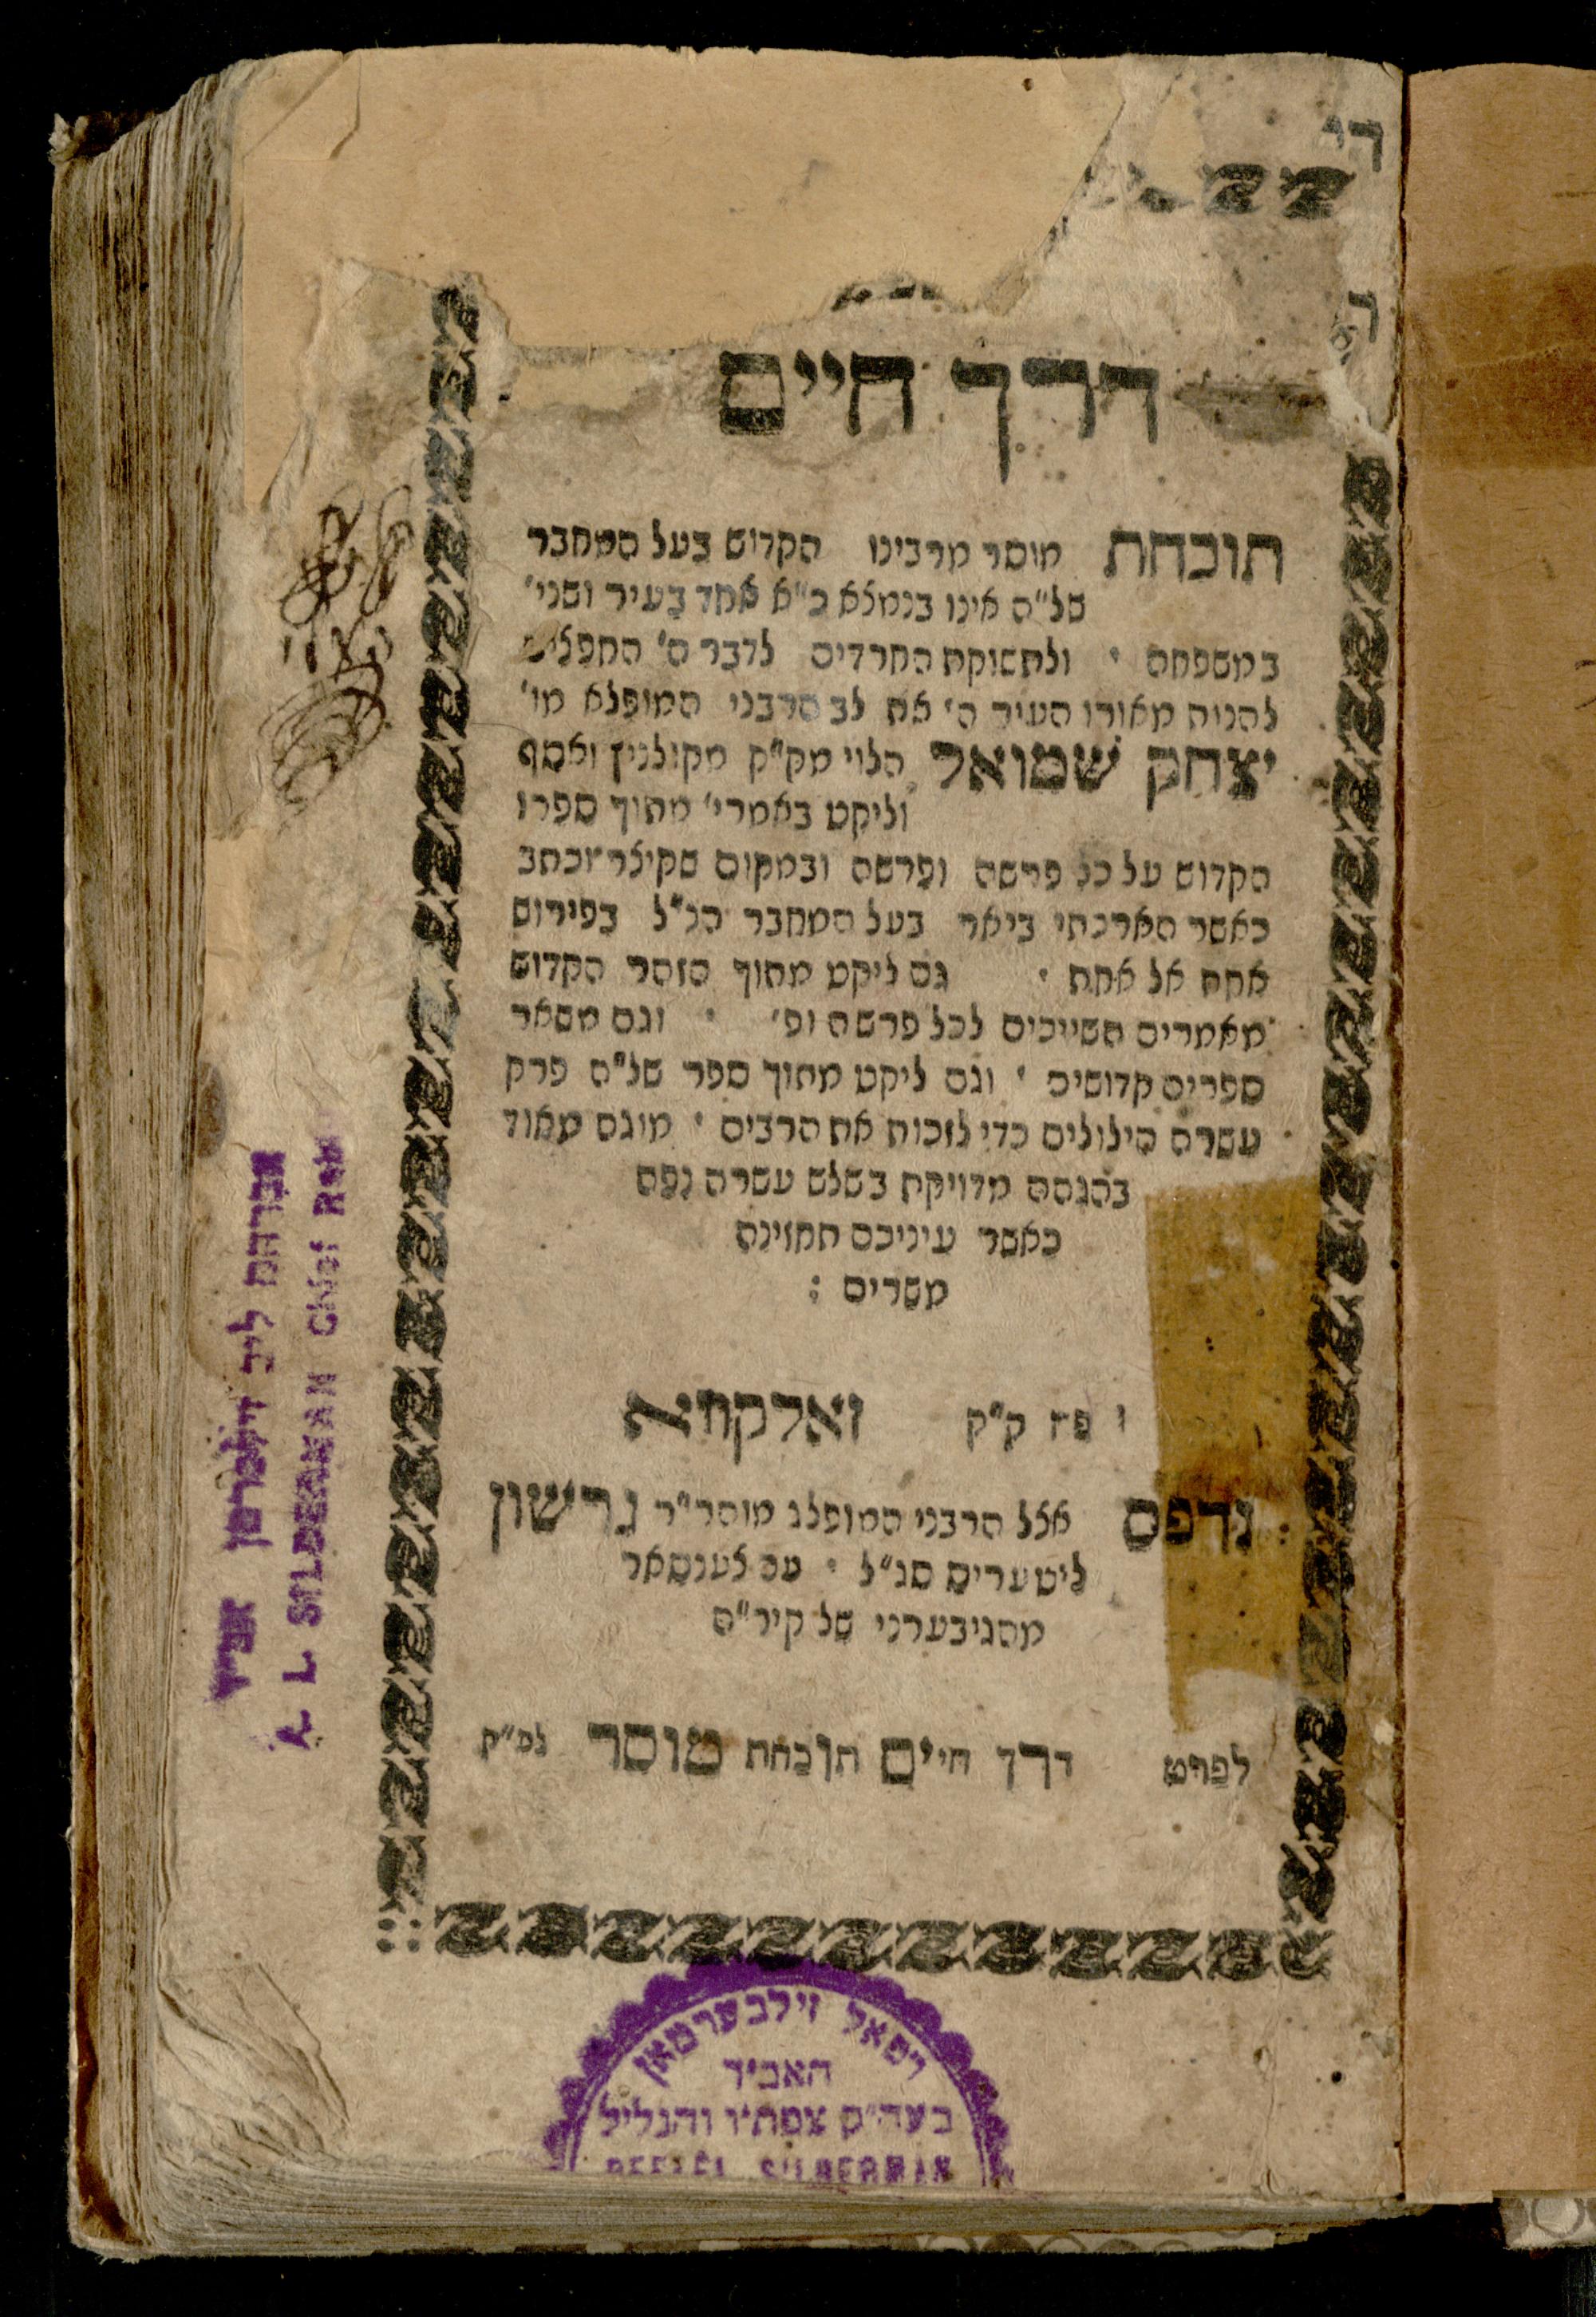 דרך חיים
תוכחת מוסר מרבינו הקדוש בעל המחבר
של"ה אינו בנמצא כ"א אחד בעיר ושני'
במשפחה ולתשוקת החרדים לדבר ה' החפצים
להנות מאורו העיר ה' את לב הרבני המופלא מו'
יצחק שמואל הלוי מק"ק מקולנין ואסף
וליקט באמרי' מתוך ספרו
הקדוש על כל פרשה ופרשה ובמקום שקיצר וכתב
כאשר הארכתי ביאר בעל המחבר הנ"ל בפירוש
אחת אל אחת גם ליקט מתוך הזוהר הקדוש
מאמרים השייכים לכל פרשה ופ' וגם משאר
ספרים קדושים וגם ליקט מתוך ספר של"ה פרק
עשרה הילולים כדי לזכות את הרבים מוגה מאוד
בהגהה מדויקת בשלש עשרה נפה
כאשר עיניכם תחזינה
משרים :
פה ק"ק זאלקווא
נדפס אצל הרבני המופלג מוהר"ר גרשון
ליטעריס סג"ל עם לענסאר
מהגיבערני של קיר"ה
לפרט דרך חיים תוכחת מוסר לפ"ק
אברהם ליב זילברמן אב"ד
A L SILBERMAN Chief Rab
רפאל זילבערמאן
האב"ד
בעה"ק צפת"ו והגליל
REFAEL SILBERMAN